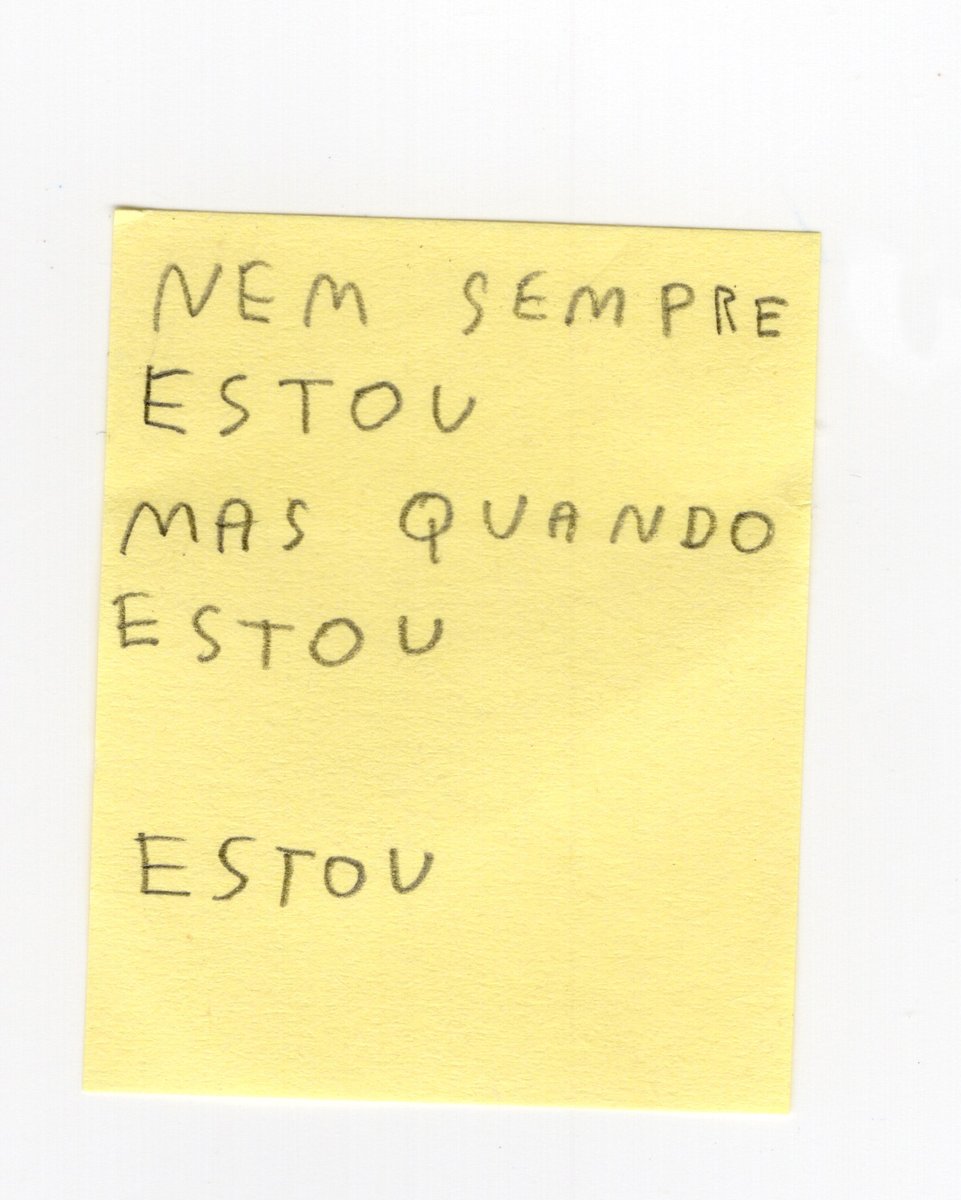 NEM SEMPRE
ESTOU
MAS QUANDO
ESTOU
ESTOU